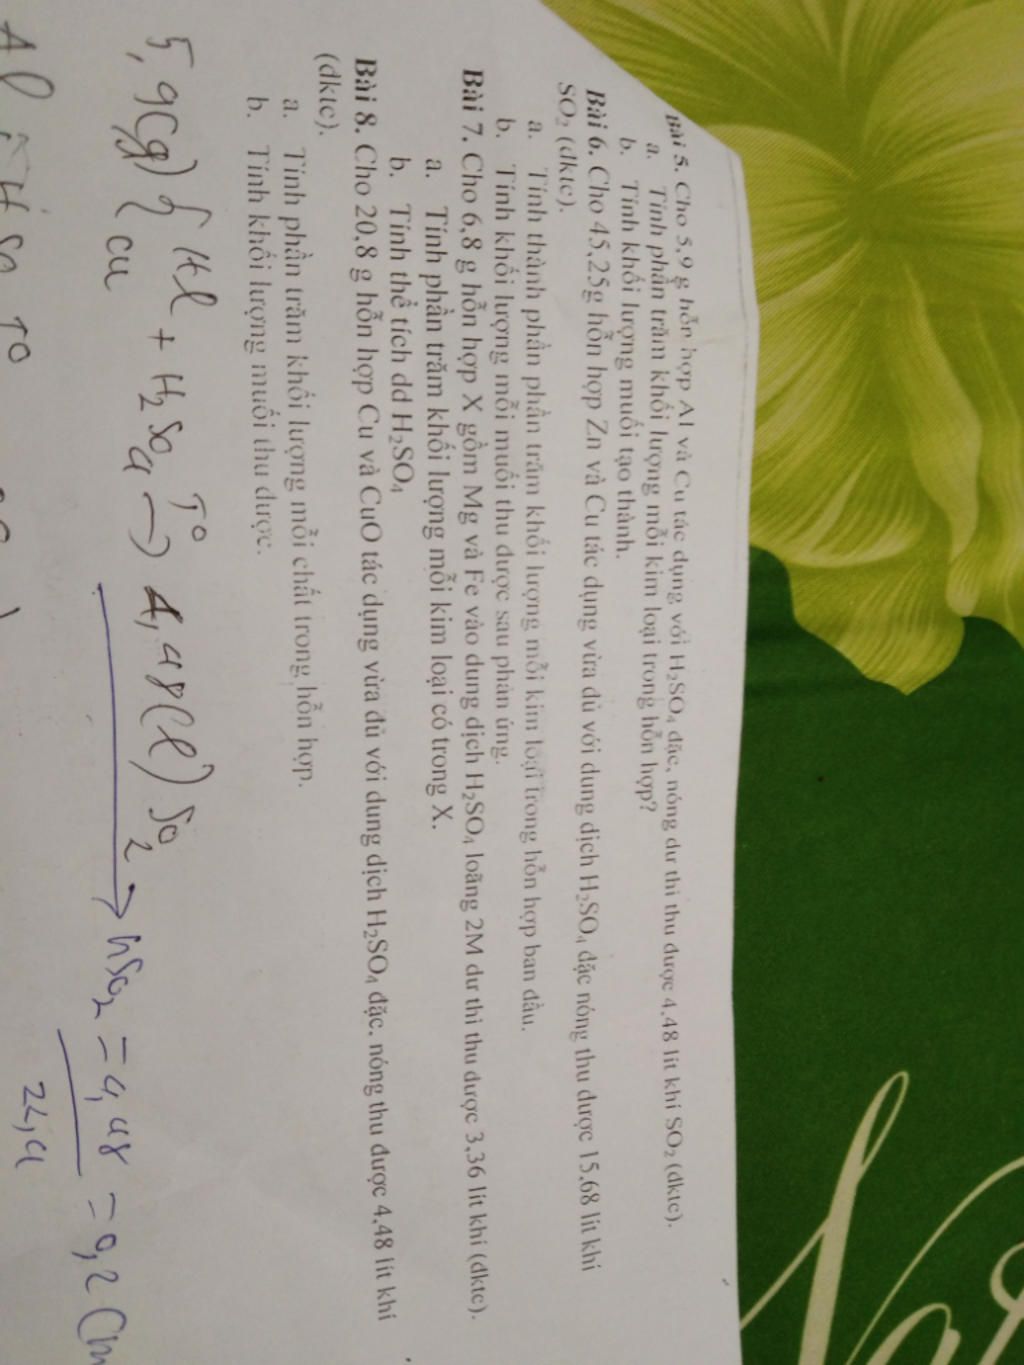 Bài 5. Cho 5,9 g hỗn hợp Al và Cu tác dụng với H₂SO₄ đặc, nóng dư thì thu được 4,48 lít khí SO₂ (đktc).
a. Tính phần trăm khối lượng mỗi kim loại trong hỗn hợp?
b. Tính khối lượng muối tạo thành.
Bài 6. Cho 45,25g hỗn hợp Zn và Cu tác dụng vừa đủ với dung dịch H₂SO₄ đặc nóng thu được 15,68 lít khí
SO₂ (đktc).
a. Tính thành phần phần trăm khối lượng mỗi kim loại trong hỗn hợp ban đầu.
b. Tính khối lượng mỗi muối thu được sau phản ứng.
Bài 7. Cho 6,8 g hỗn hợp X gồm Mg và Fe vào dung dịch H₂SO₄ loãng 2M dư thì thu được 3,36 lít khí (đktc).
a. Tính phần trăm khối lượng mỗi kim loại có trong X.
b. Tính thể tích dd H₂SO₄
Bài 8. Cho 20,8 g hỗn hợp Cu và CuO tác dụng vừa đủ với dung dịch H₂SO₄ đặc, nóng thu được 4,48 lít khí
(đktc).
a. Tính phần trăm khối lượng mỗi chất trong hỗn hợp.
b. Tính khối lượng muối thu được.
5,9(g) { Al Cu + H₂SO₄ T° → 4,48(l) SO₂
nSO₂ = 4,48 / 22,4 = 0,2 (m
Al
T°